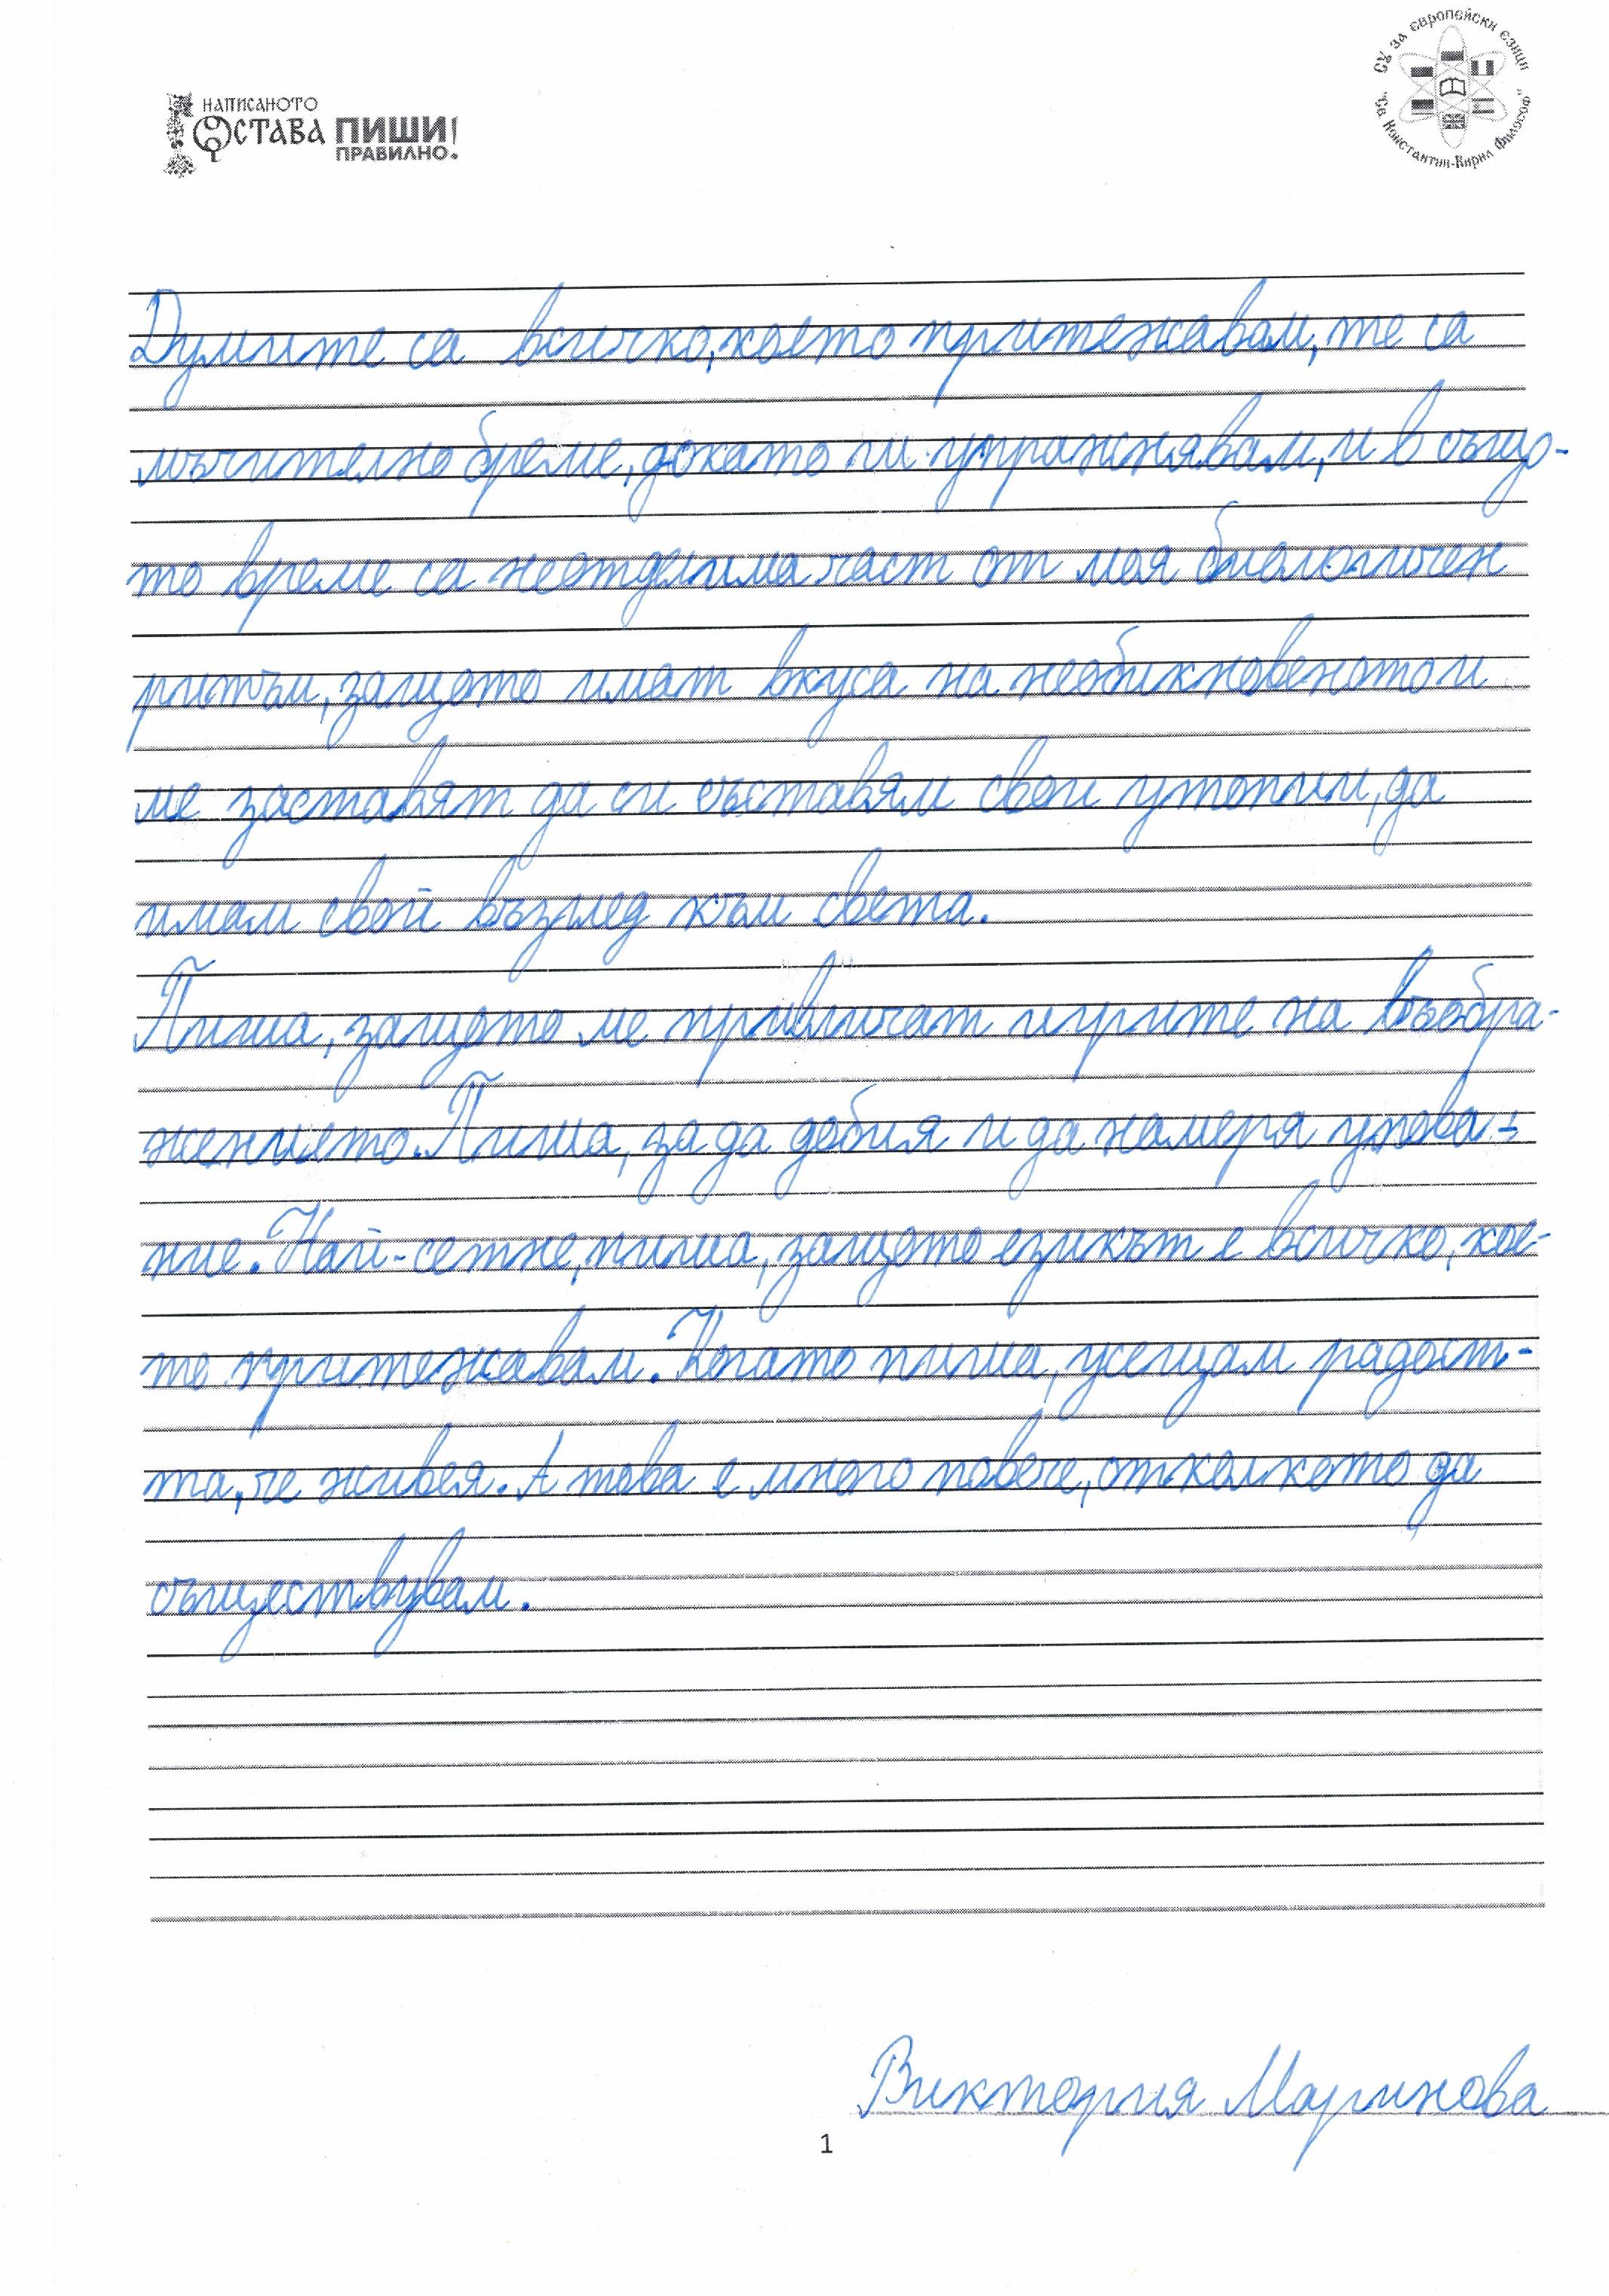 НАПИСАНОТО
ОСТАВА ПИШИ!
ПРАВИЛНО.
СУ за европейски езици
"Св Константин-Кирил Философ"
Думите са всичко, което притежавам, те са
мъчително бреме, докато ги упражнявам, и в също-
то време са неотделима част от моя биологичен
ритъм, защото имат вкуса на необикновеното и
ме заставят да си съставям свои утопии, да
имам свой възглед към света.
Пиша, защото ме привличат игрите на въобра-
жението. Пиша, за да добия и да намеря упова-
ние. Най-сетне, пиша, защото езикът е всичко, кое-
то притежавам. Когато пиша, усещам радост-
та, че живея. А това е много повече, отколкото да
съществувам.
Виктория Маринова
1